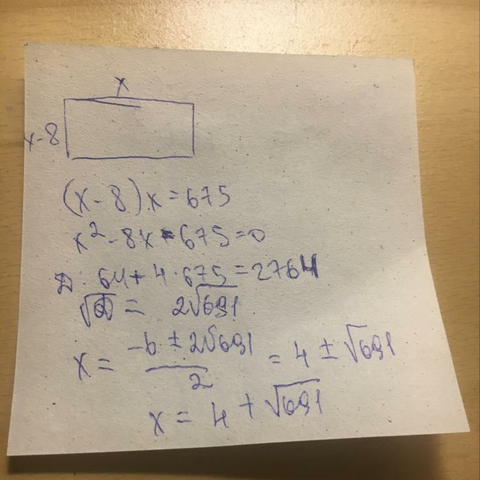 x
x-8
(x-8)x=675
x²-8x-675=0
D: 64+4·675=2764
√D = 2√691
x = (-b ± 2√691)/2 = 4 ± √691
x = 4 + √691